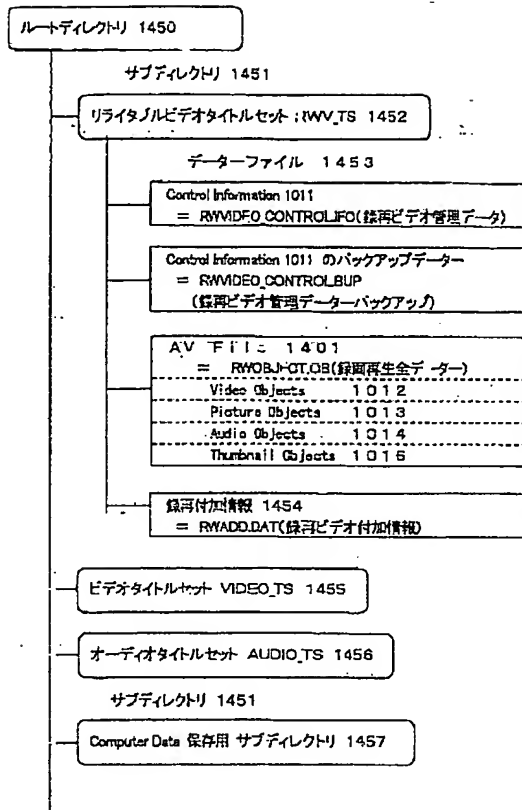 ルートディレクトリ 1450
サブディレクトリ 1451
リライタブルビデオタイトルセット ; RWV_TS 1452
データーファイル 1453
Control Information 1011
= RWVIDEO_CONTROL.IFO(録再ビデオ管理データ)
Control Information 1011 のバックアップデーター
= RWVIDEO_CONTROL.BUP
(録再ビデオ管理データーバックアップ)
AV File 1401
= RWOBJECT.OB(録画再生全データー)
Video Objects 1012
Picture Objects 1013
Audio Objects 1014
Thumbnail Objects 1016
録再付加情報 1454
= RWADD.DAT(録再ビデオ付加情報)
ビデオタイトルセット VIDEO_TS 1455
オーディオタイトルセット AUDIO_TS 1456
サブディレクトリ 1451
Computer Data 保存用 サブディレクトリ 1457